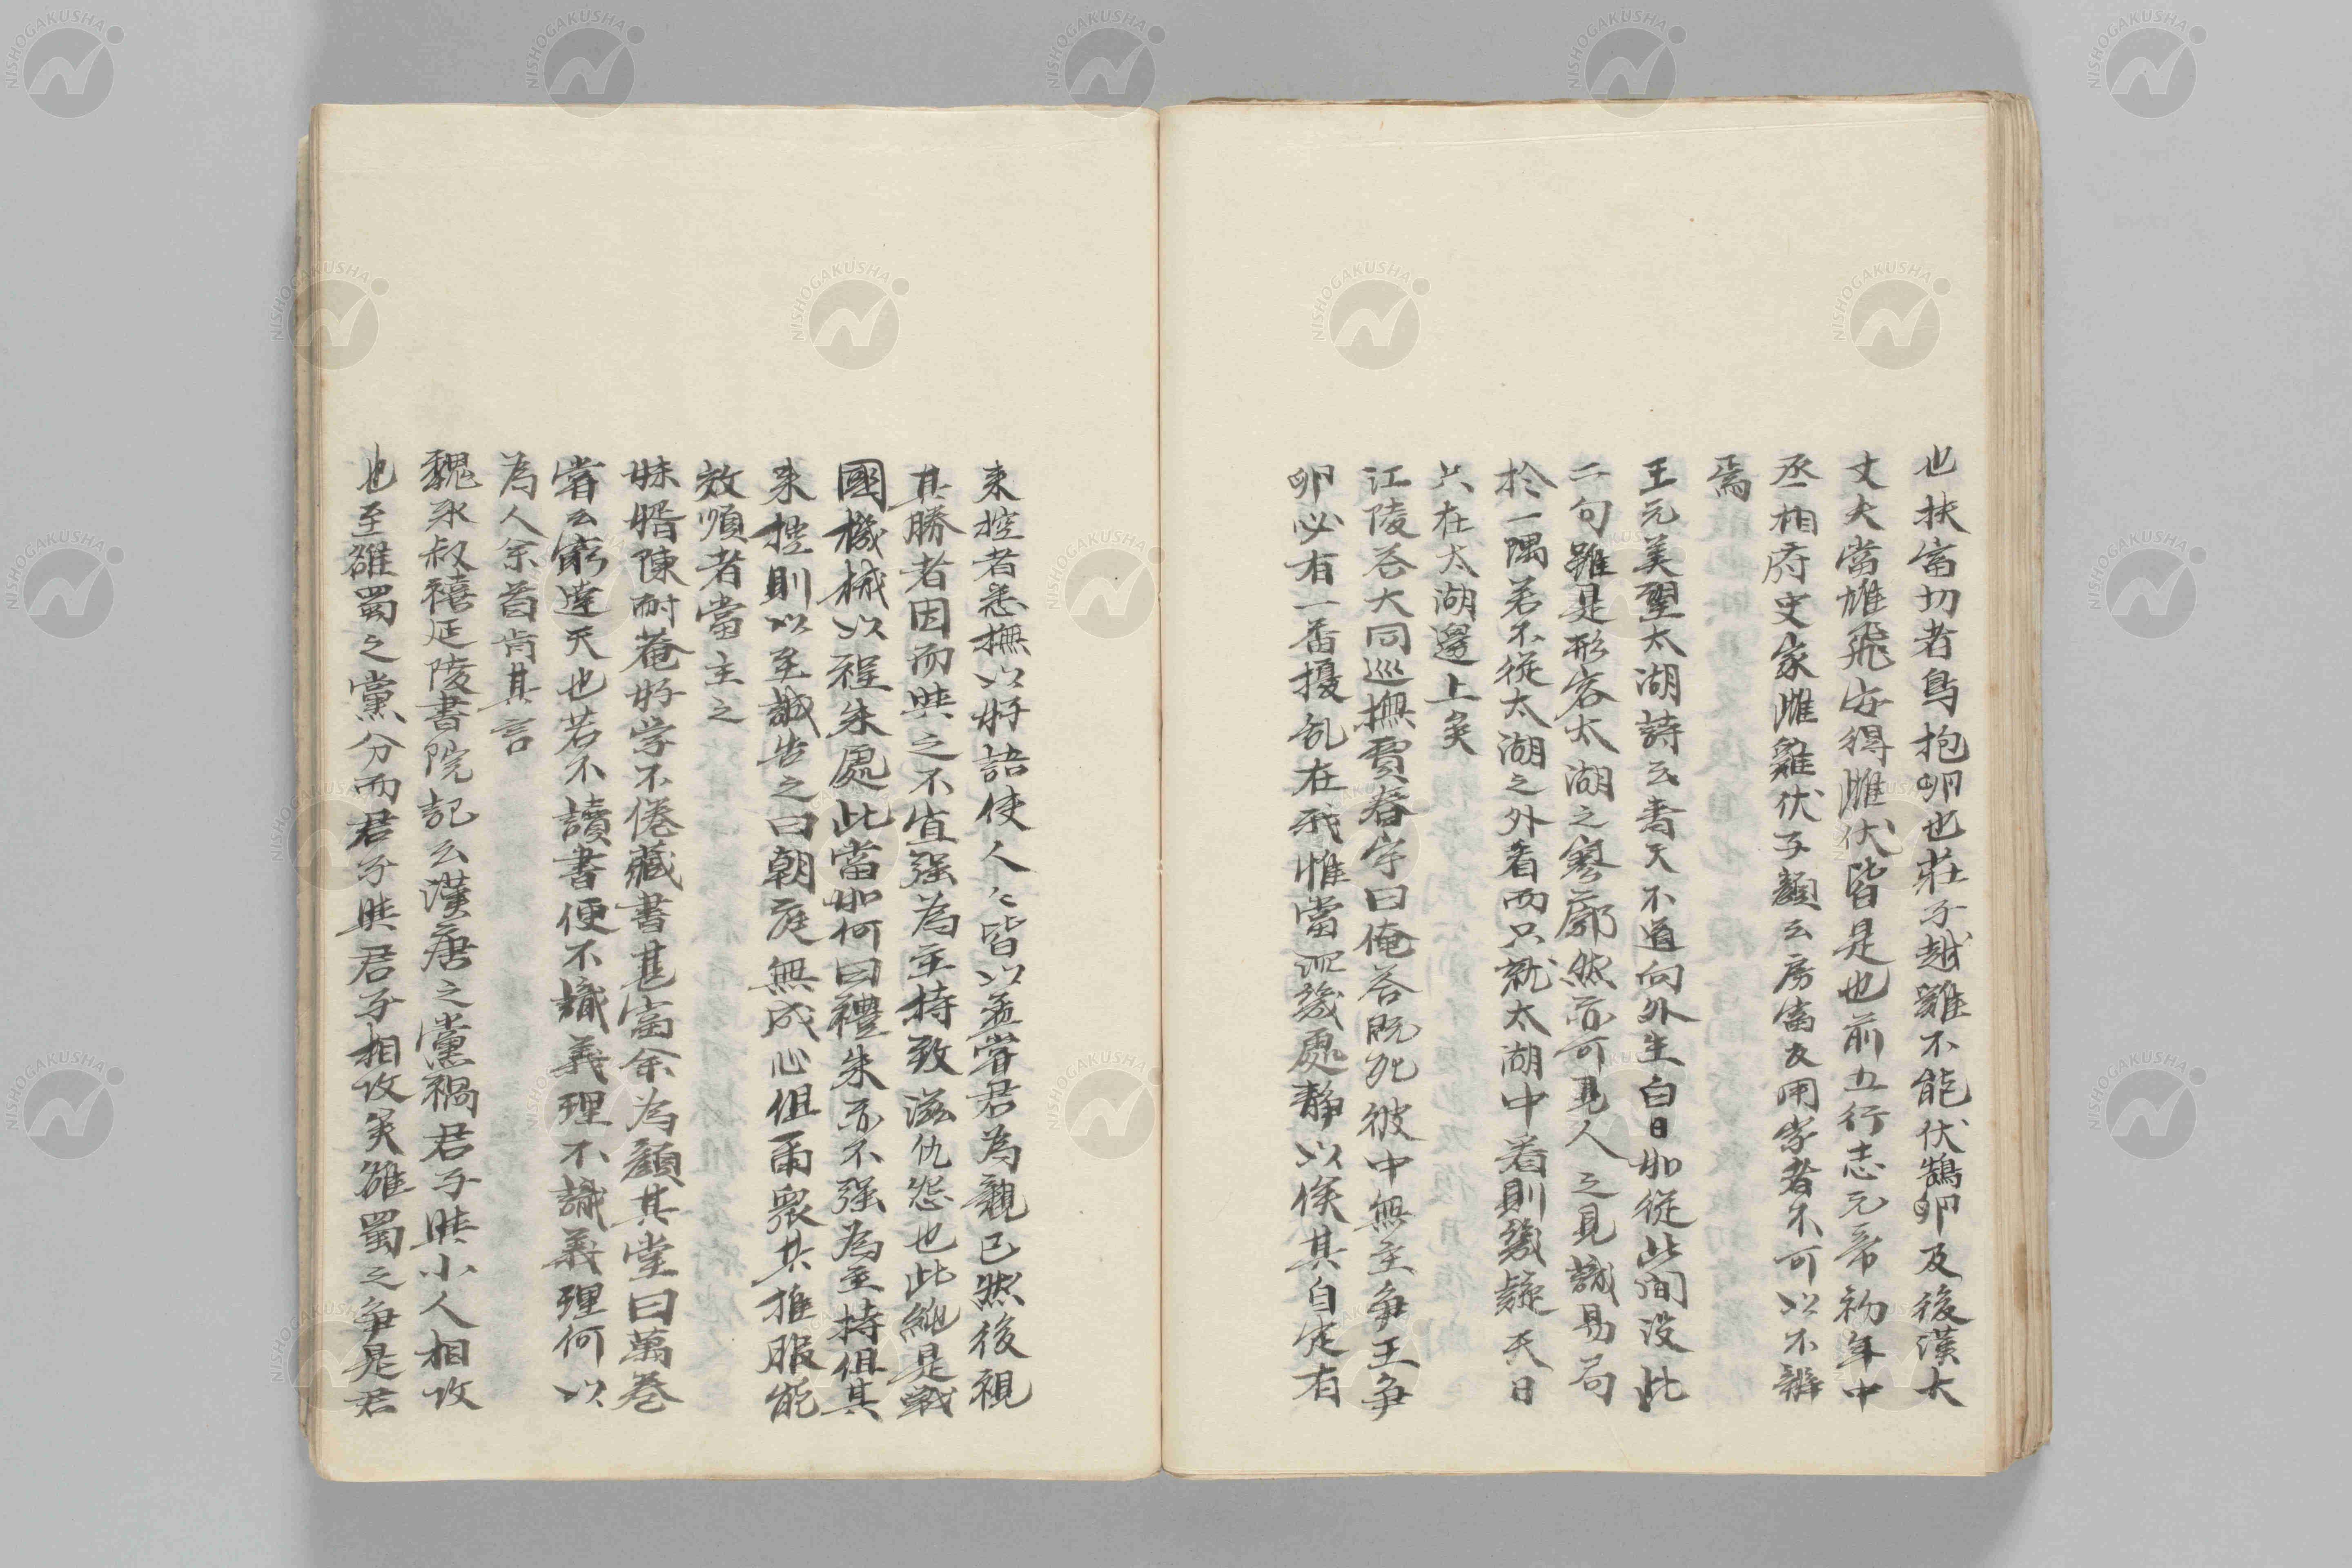 也扶富切者鳥抱卵也莊子越雞不能伏鵠卵及後漢大
丈夫當雄飛安得雌伏皆是也前五行志元帝初年中
丞相府史家雌雞伏子顏云房富反用字者不可以不辨
焉
王元美望太湖詩云青天不道向外生白日如從此間没此
二句雖是形容太湖之寥廓然亦可見人之見識易局
於一隅若不從太湖之外看而只就太湖中看則幾疑天日
只在太湖邊上矣
江陵答大同巡撫賈春宇曰俺答既死彼中無主爭王爭
卵必有一番擾乱在我惟當沉幾處靜以俟其自定有
来控者悉撫以好語使人々皆以孟嘗君為親己然後視
其勝者因而與之不宜强為主持致滋仇怨也此純是戰
國機械以程朱處此當如何曰禮朱亦不强為主持但其
来控則以至誠告之曰朝庭無成心但爾衆共推服能
效順者當主之
妹婿陳耐菴好学不倦藏書甚富余為顏其堂曰萬卷
嘗云窮達天也若不讀書便不識義理不識義理何以
為人余首肯其言
魏永叔禧延陵書院記云漢唐之黨禍君子與小人相攻
也至雒蜀之黨分而君子與君子相攻矣雒蜀之爭是君